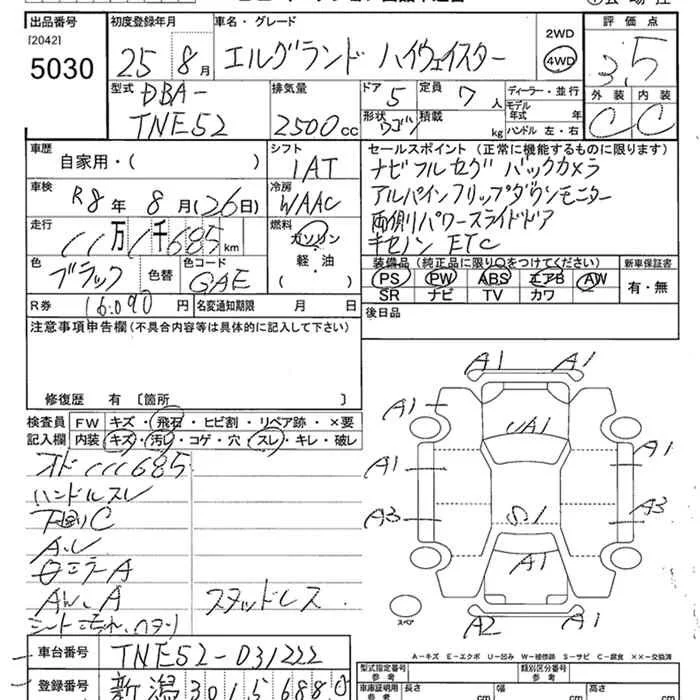 出品番号
[2042]
5030
初度登録年月
25年8月
車名・グレード
エルグランド ハイウェイスター
2WD
4WD
評価点
3.5
外装 内装
C C
型式
DBA-
TNE52
排気量
2500cc
ドア
5
定員
7人
形状
ワゴン
積載
kg
ディーラー・並行
モデル年式 年
ハンドル 左・右
車歴
自家用・( )
シフト
IAT
車検
R8年 8月(26日)
冷房
WAAC
走行
11万1千685km
燃料
ガソリン
軽・油
( )
色
ブラック
色替
色コード
GAE
R券 16,090円
名変通知期限 月 日
セールスポイント (正常に機能するものに限ります)
ナビ フルセグ バックカメラ
アルパインフリップダウンモニター
両側パワースライドドア
キセノン ETC
装備品(純正品に限り○をつけてください)
PS PW ABS エアB AW
SR ナビ TV カワ
新車保証書
有・無
後日品
注意事項申告欄(不具合内容等は具体的に記入して下さい)
修復歴 有 [箇所 ]
検査員
記入欄
FW キズ・飛石・ヒビ割・リペア跡・×要
内装 キズ・汚れ・コゲ・穴・スレ・キレ・破レ
オド111685
ハンドルスレ
下回りC
A.U
ロミラーA
AW.A スタッドレス
シート汚れ、ヘタリ
A1 A1
A1
UA1
A1 A1
A3 S.1 A3
A1
A2 A1
スペア
A-キズ E-エクボ U-凹み W-補修跡 S-サビ C-腐食 ××-交換済
車台番号 TNE52-031222
登録番号 新潟 301 5 6880
型式指定番号
参考
類別区分番号
参考
車庫証明用
参考
長さ cm
幅 cm
高さ cm